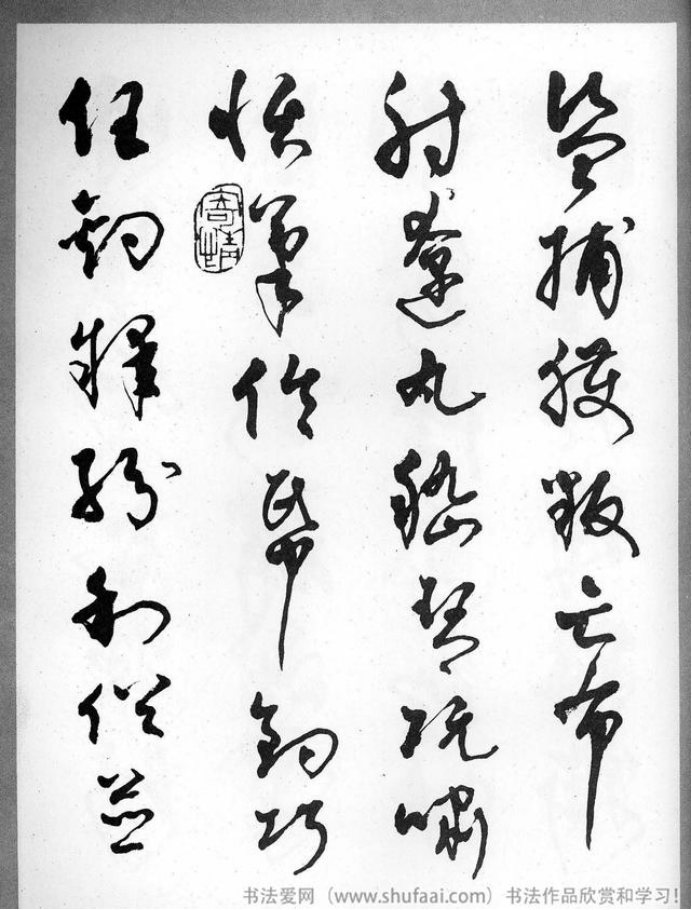 盜捕獲叛亡布
射遼丸嵇琴阮嘯
恬筆倫帋鈞巧
任釣釋紛利俗並
书法爱网（www.shufaai.com）书法作品欣赏和学习！